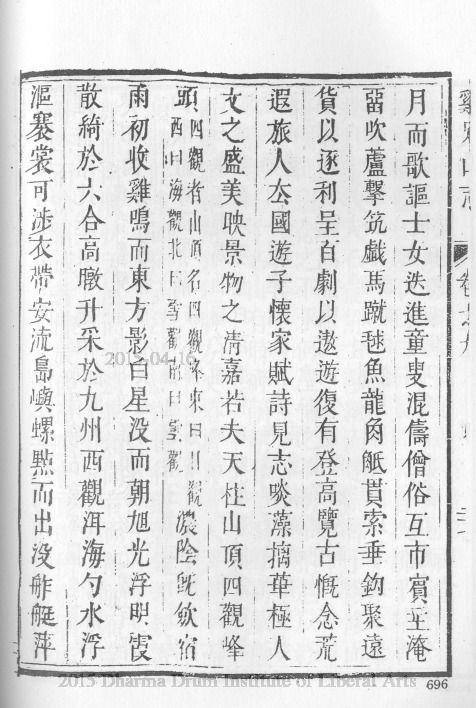 月而歌謳士女迭進童叟混儔僧俗互市賓至淹
畱吹蘆擊筑戲馬蹴毬魚龍角觝貫索垂鈎聚遠
貨以逐利呈百劇以遨遊復有登高覽古慨念荒
遐旅人去國遊子懷家賦詩見志啖藻摛華極人
文之盛美映景物之清嘉若夫天柱山頂四觀峰
頭四觀者山頂名四觀峯東曰日觀
西曰海觀北曰雪觀南曰雲觀濃陰旣斂宿
雨初收雞鳴而東方影白星没而朝旭光浮明霞
散綺於六合高暾升采於九州西觀洱海勺水浮
漚褰裳可涉衣帶安流島嶼螺㸃而出没舴艋萍
696
2015-04-16
2015 Dharma Drum Institute of Liberal Arts